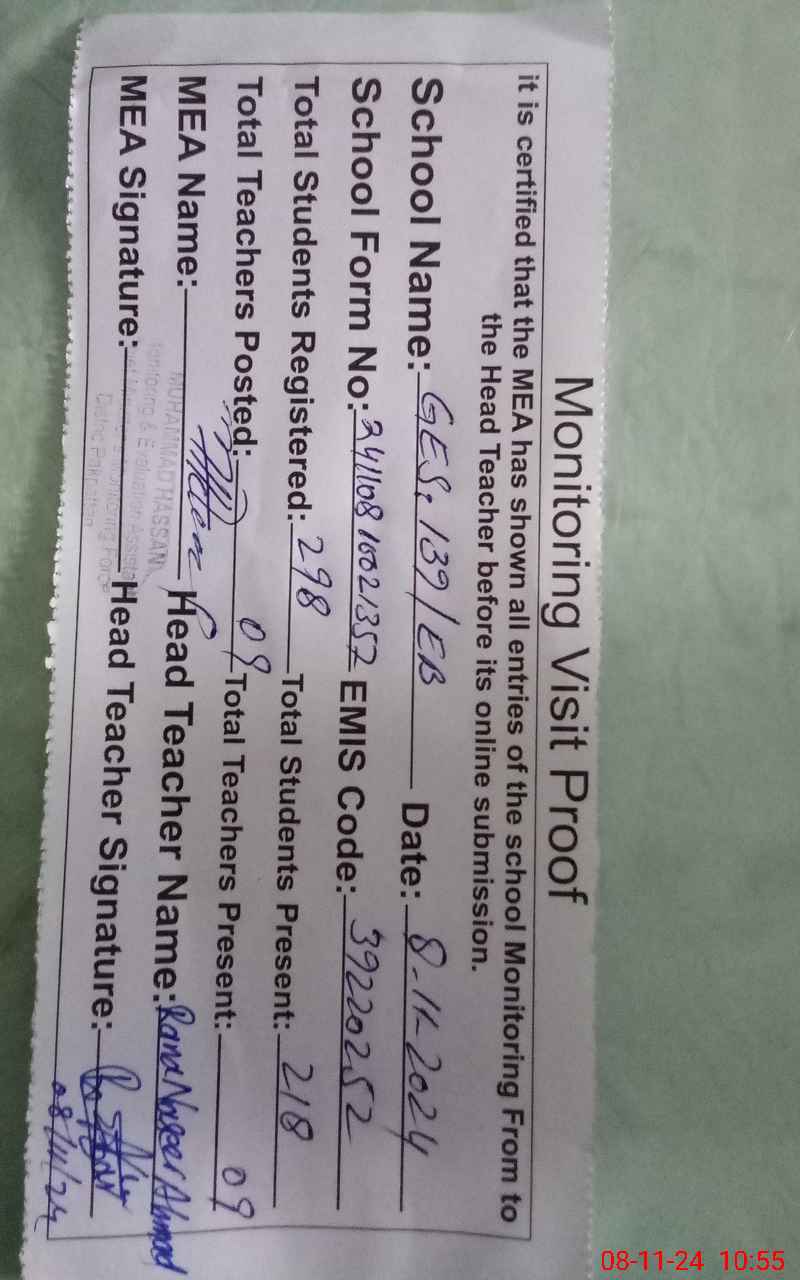 Monitoring Visit Proof
it is certified that the MEA has shown all entries of the school Monitoring From to
the Head Teacher before its online submission.
School Name: GES, 139/EB Date: 8-11-2024
School Form No: 24110810021357 EMIS Code: 39220252
Total Students Registered: 298 Total Students Present: 218
Total Teachers Posted: 09 Total Teachers Present: 09
MEA Name: Head Teacher Name: Rana Naseer Ahmad
MUHAMMAD HASSAN
MEA Signature: Head Teacher Signature:
Monitoring & Evaluation Assistant
Monitoring Force
District Pakpattan
08/11/24
08-11-24 10:55